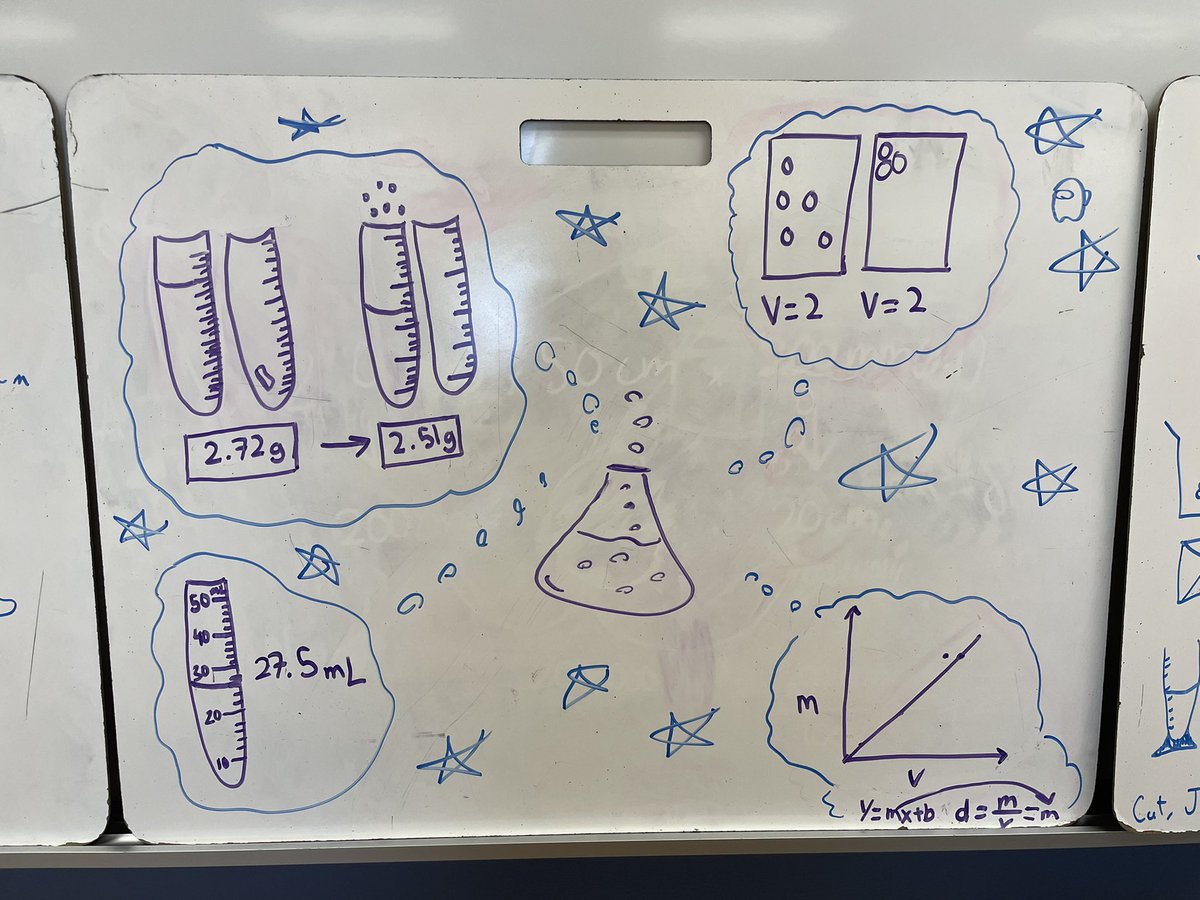 2.72g → 2.51g
V=2 V=2
50
40
30
20
10
27.5mL
m
V
y=mx+b d=m/v=m
Cut, J